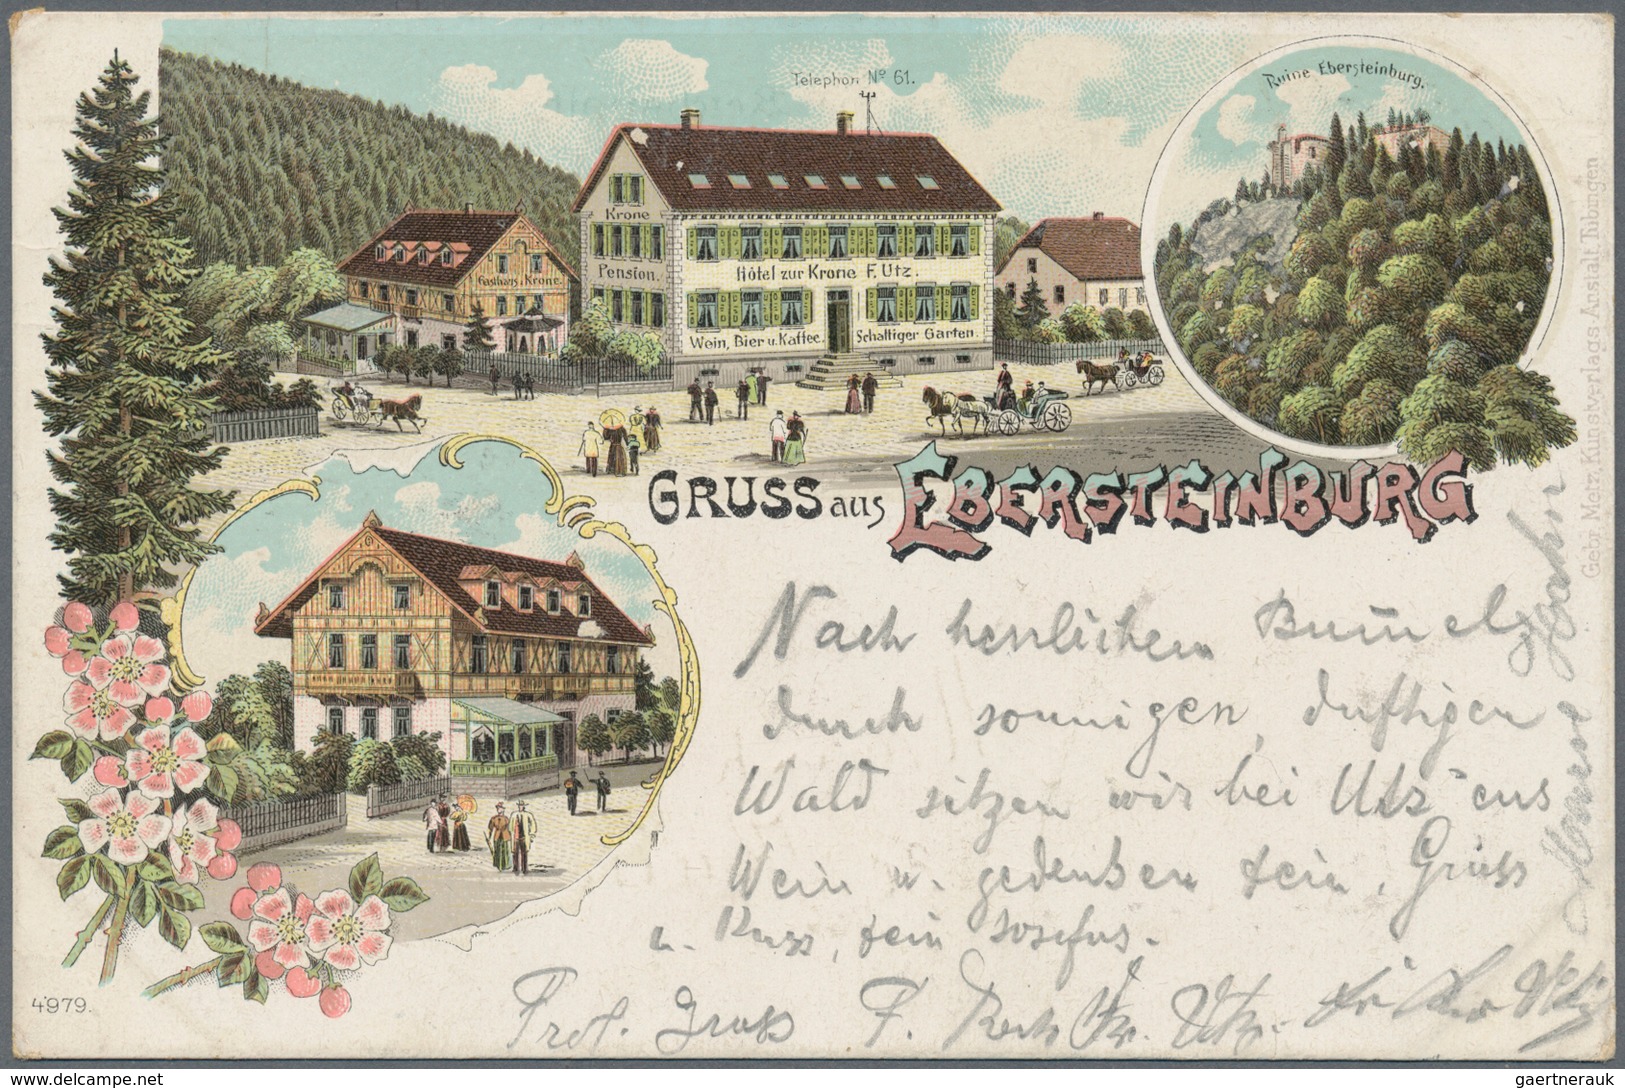 Telephon Nº 61.
Ruine Ebersteinburg.
Krone
Pension.
Gasthaus z. Krone.
Hôtel zur Krone F. Utz.
Wein, Bier u. Kaffee.
Schattiger Garten.
GRUSS aus EBERSTEINBURG
Gebr. Metz, Kunstverlags-Anstalt, Tübingen
Nach herrlichem Bum̄elz
durch sonnigen, duftigen
Wald sitzen wir bei Utz ens
Wein u. gedenken dein, Gruss
u. Kuss, dein Josefus.
Prof. Gross F.
Utz
4979.
gaertnerauk